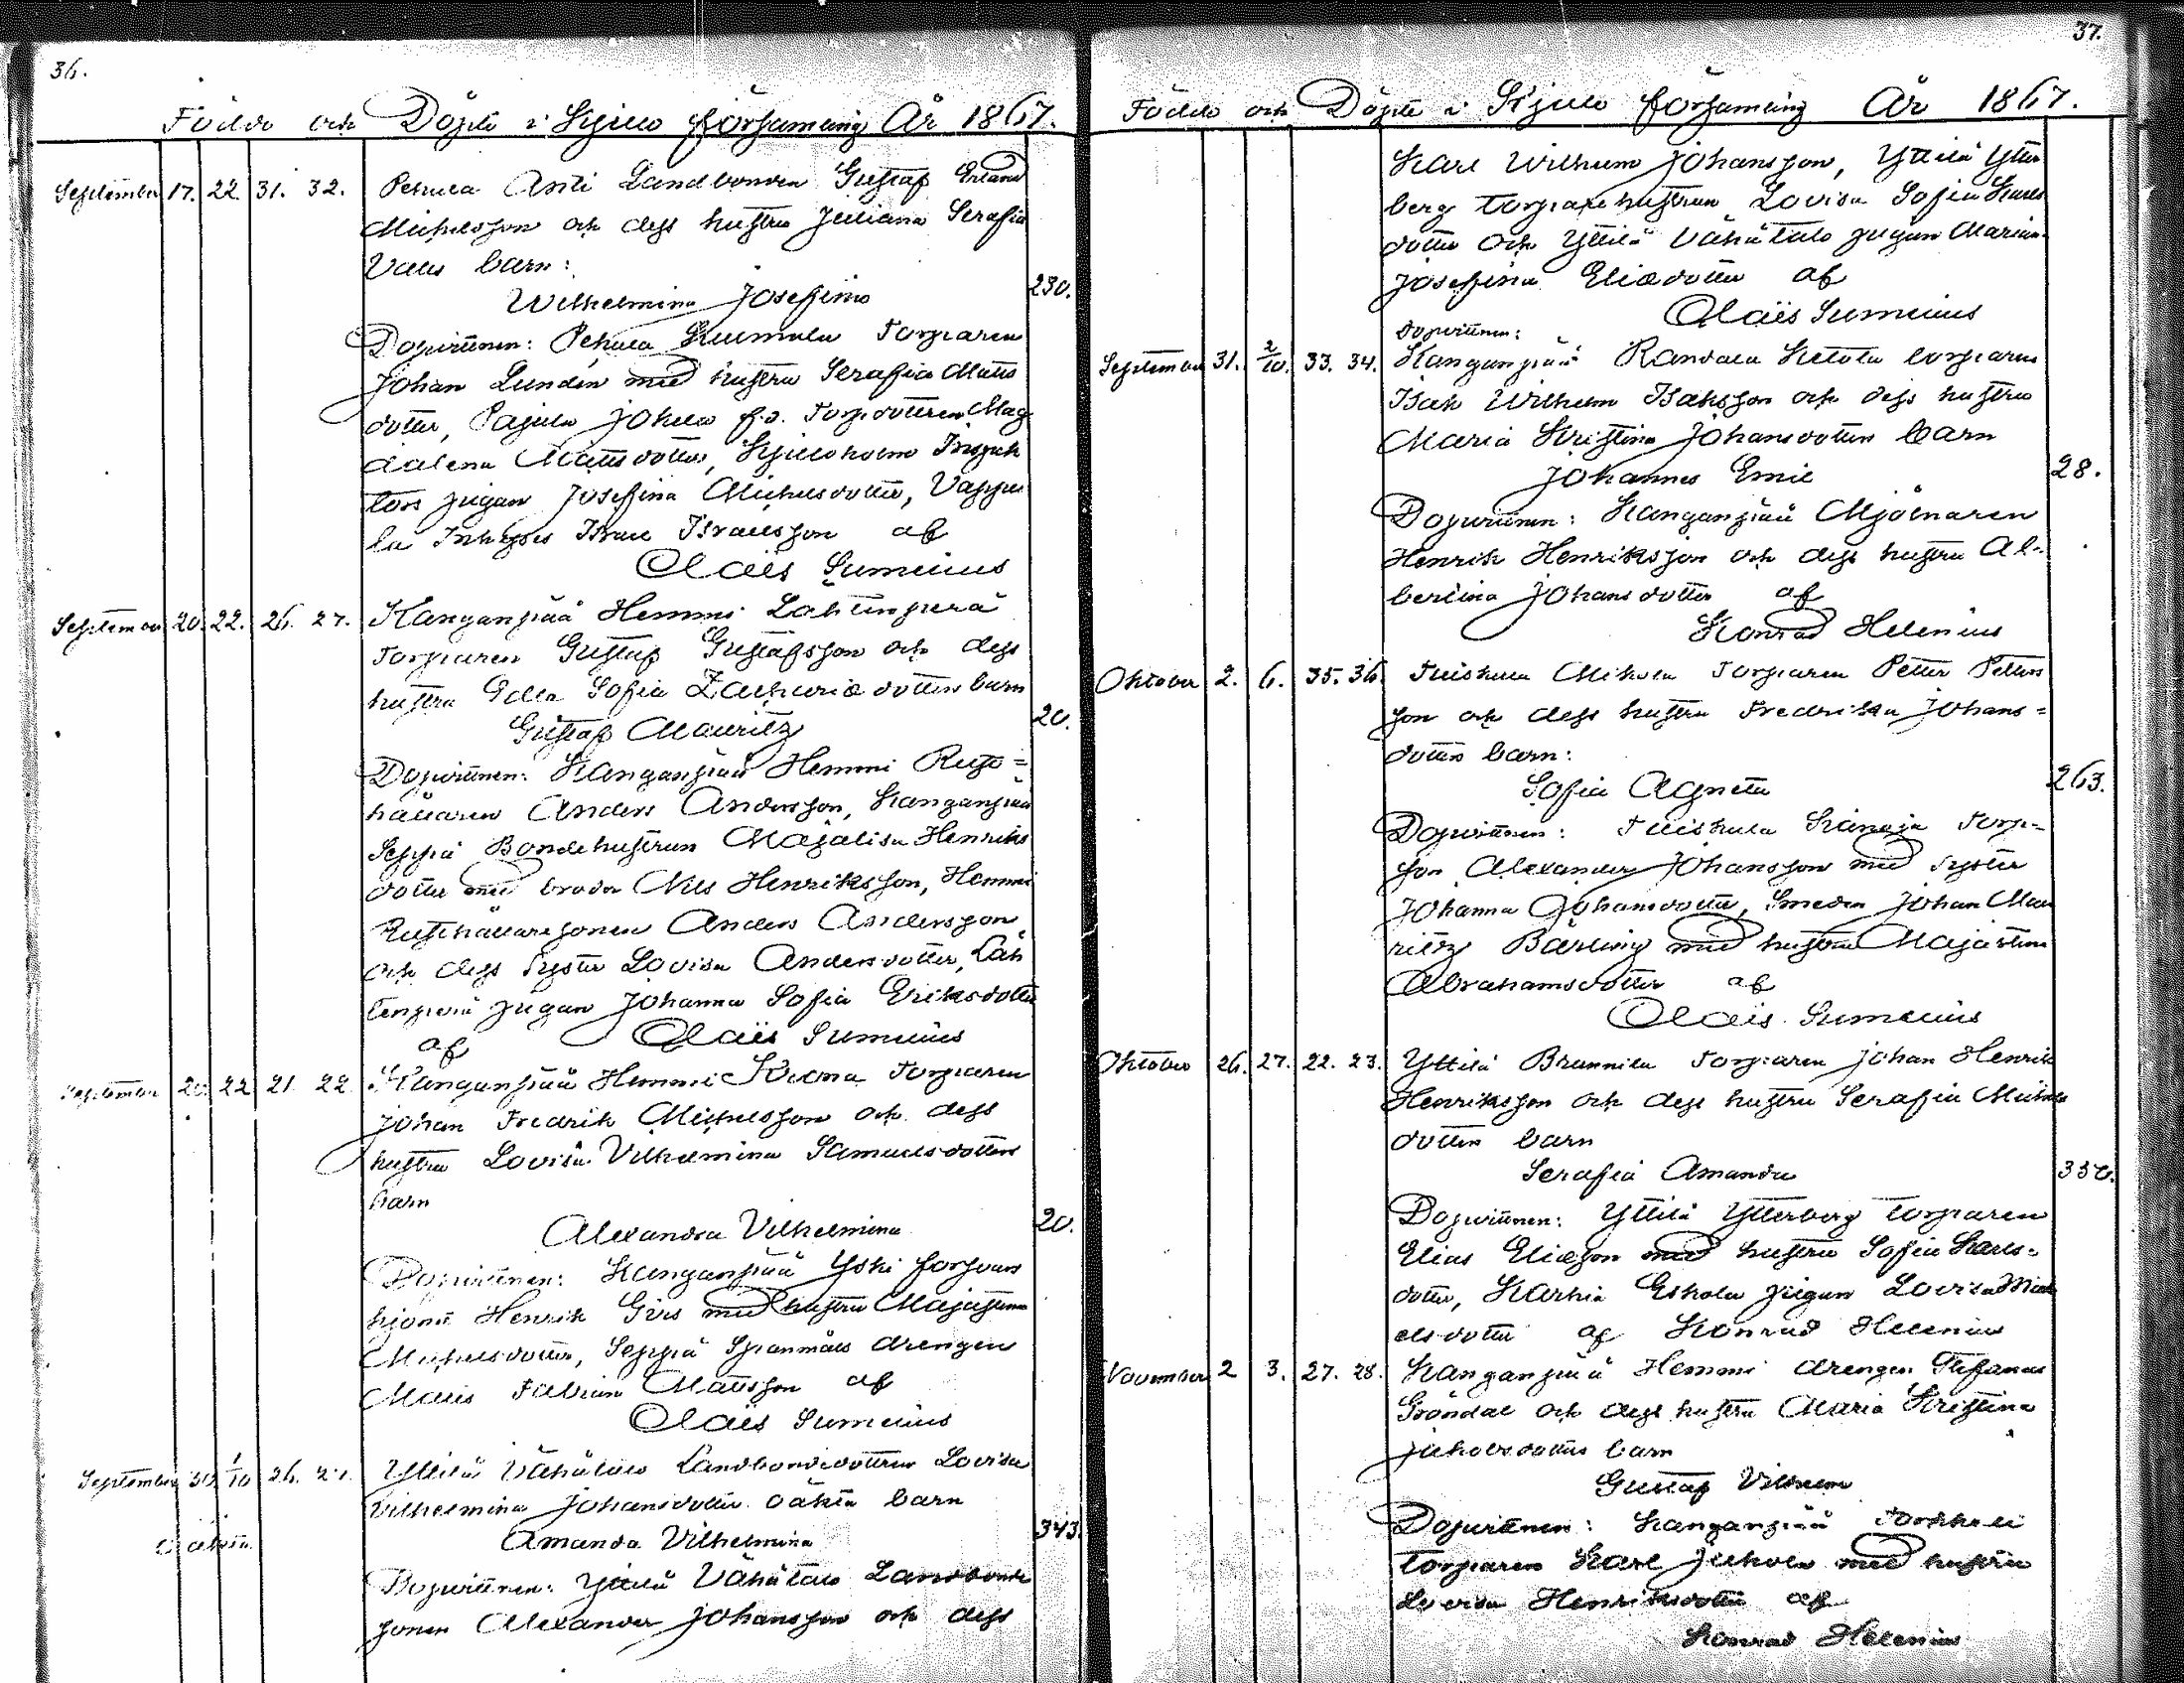 36.
Födde och Döpte i Kjulo församling År 1867.
September 17. 22. 31. 32. Pehula Anti Landbonden Gustaf Erland
Michelsson och dess hustru Juliana Serafia
Valis barn:
Wilhelmina Josefina 230.
Dopvittnen: Pehula Kuumola Torparen
Johan Lundén med hustru Serafia Matts
dotter, Pajula Johula f.d. Torpdottren Mag
dalena Mattsdotter, Kjuloholm Inspek
tors pigan Josefina Michelsdotter, Vappu
la Inhyses Israel Israelsson af
Claës Sumelius
September 20. 22. 26. 27. Kanganpää Hemmi Lahtinperä
Torparen Gustaf Gustafsson och dess
hustru Edla Sofia Zachariædotters barn
Gustaf Mauritz 20.
Dopvittnen: Kanganpää Hemmi Rust=
hållaren Anders Andersson, Kanganpää
Seppä Bondehustrun Majalisa Henriks
dotter med broder Nils Henriksson, Hemmi
Rusthållaresonen Anders Andersson
och dess Syster Lovisa Andersdotter, Lah
tenperä pigan Johanna Sofia Eriksdotter
af Claës Sumelius
September 20. 22 21 22 Kanganpää Hemmi Torparen
Johan Fredrik Michelsson och dess
hustru Lovisa Vilhelmina Samuelsdotters
barn
Alexandra Vilhelmina 20.
Dopvittnen: Kanganpää Yski försvars
hjonet Henrik Girs med hustru Majastina
Michelsdotter, Seppä Spanmåls drengen
Matts Fabian Mattsson af
Claës Sumelius
September 30. 1/10 26. 27. Yttilä Vähätalo Landbondedottren Lovisa
Vilhelmina Johansdotter oäkta barn
oäkta Amanda Vilhelmina 343.
Dopvittnen: Yttilä Vähätalo Landbonde
sonen Alexander Johansson och dess
37.
Födde och Döpte i Kjulo församling År 1867.
Karl Wilhelm Johansson, Yttilä Ytter
berg torparehustrun Lovisa Sofia Karls
dotter och Yttilä Vähätalo pigan Maria
Josefina Eliædotter af
Claës Sumelius
Dopvittnen:
September 31. 2/10. 33. 34. Kanganpää Randala Ketola torparen
Isak Wilhelm Isaksson och dess hustru
Maria Kristina Johansdotters barn
Johannes Emil 28.
Dopvittnen: Kanganpää Mjölnaren
Henrik Henriksson och dess hustru Al-
bertina Johansdotter af
Konrad Helenius
Oktober 2. 6. 35. 36. Tuiskula Mikola Torparen Petter Petters
son och dess hustru Fredrika Johans=
dotters barn:
Sofia Agneta 263.
Dopvittnen: Tuiskula Torp-
son Alexander Johansson med Syster
Johanna Johansdotter, Smeden Johan Mau
ritz Bärling med hustru Majastina
Abrahamsdotter af
Claës Sumelius
Oktober 26. 27. 22. 23. Yttilä Brunnila Torparen Johan Henrik
Henriksson och dess hustru Serafia Michels
dotters barn
Serafia Amanda
Dopvittnen: Yttilä Ytterberg torparen
Elias Eliæson med hustru Sofia Karls-
dotter, Karhia Eskola pigan Lovisa Mich
elsdotter af Konrad Helenius
November 2 3. 27. 28. Kanganpää Hemmi drengen Stefanus
Gröndal och dess hustru Maria Kristina
Juholasdotters barn
Gustaf Vilhelm
Dopvittnen: Kanganpää
torparen Karl Juhola med hustru
Lovisa Henriksdotter af
Konrad Helenius